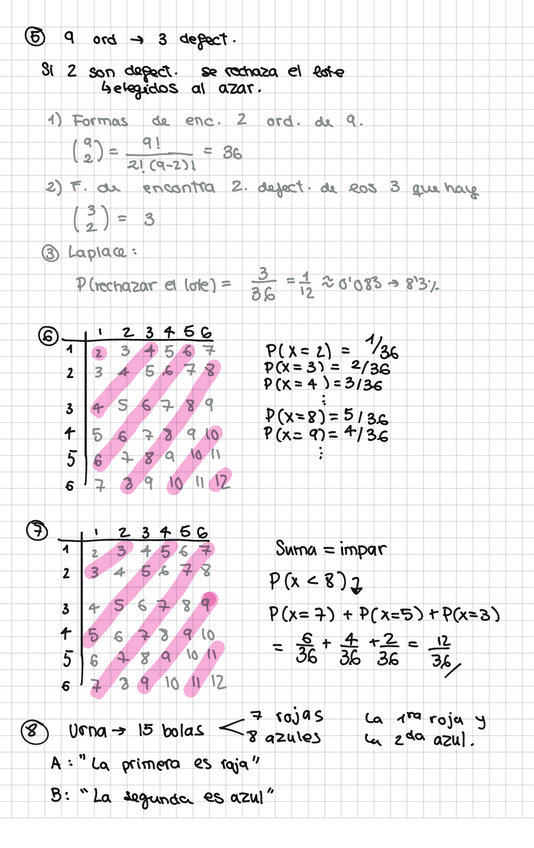 ⑤ 9 ord → 3 defect.
Si 2 son defect. se rechaza el lote
↳elegidos al azar.
1) Formas de enc. 2 ord. de 9.
(9 2) = 9! / 2!(9-2)! = 36
2) F. de encontra 2. defect. de los 3 que hay
(3 2) = 3
③ Laplace:
P(rechazar el lote) = 3/36 = 1/12 ≈ 0'083 → 8'3%
⑥ 1 2 3 4 5 6
1 2 3 4 5 6 7
2 3 4 5 6 7 8
3 4 5 6 7 8 9
4 5 6 7 8 9 10
5 6 7 8 9 10 11
6 7 8 9 10 11 12
P(x=2) = 1/36
P(x=3) = 2/36
P(x=4) = 3/36
⋮
P(x=8) = 5/36
P(x=9) = 4/36
⋮
⑦ 1 2 3 4 5 6
1 2 3 4 5 6 7
2 3 4 5 6 7 8
3 4 5 6 7 8 9
4 5 6 7 8 9 10
5 6 7 8 9 10 11
6 7 8 9 10 11 12
Suma = impar
P(x < 8)
P(x=7) + P(x=5) + P(x=3)
= 6/36 + 4/36 + 2/36 = 12/36
⑧ Urna → 15 bolas < 7 rojas
8 azules
La 1ra roja y
la 2da azul.
A: "La primera es roja"
B: "La segunda es azul"